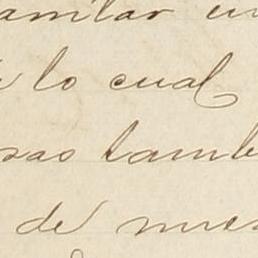 amilar en
lo cual
sas tambi
de nues